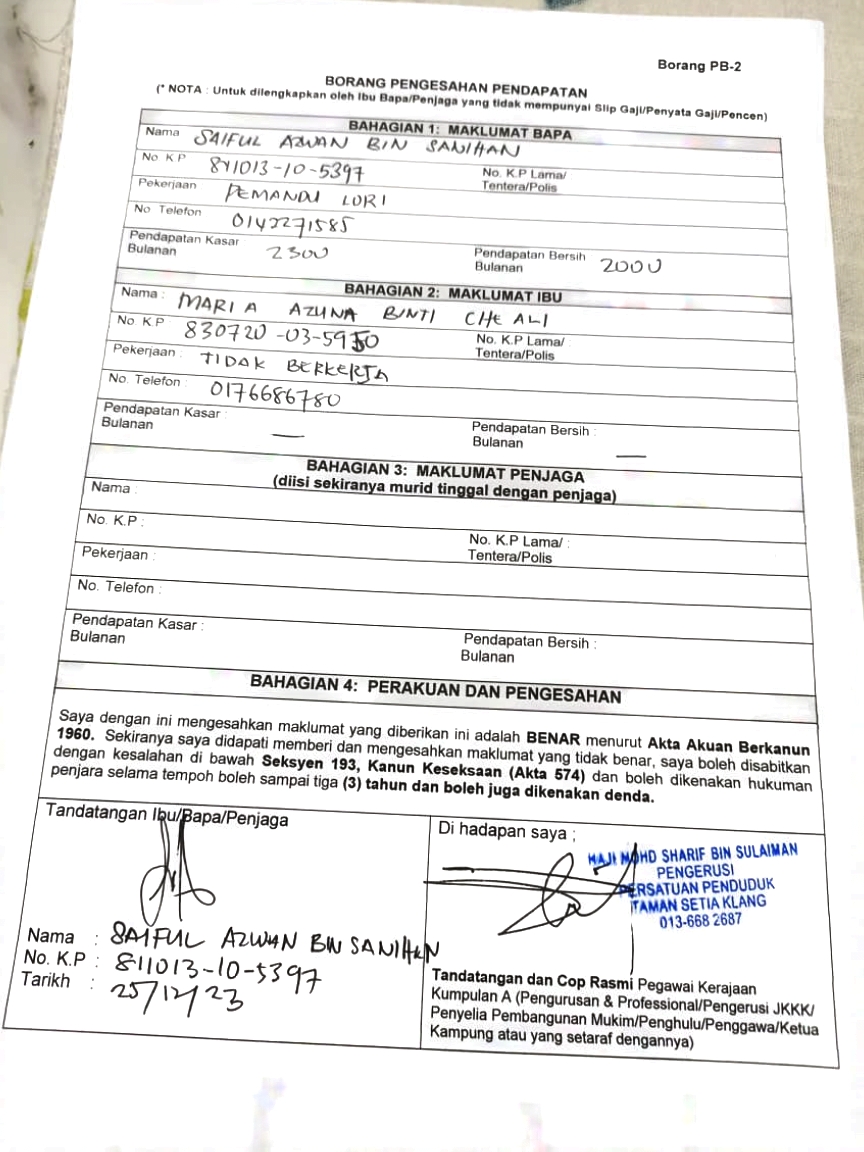 Borang PB-2
BORANG PENGESAHAN PENDAPATAN
(* NOTA : Untuk dilengkapkan oleh Ibu Bapa/Penjaga yang tidak mempunyai Slip Gaji/Penyata Gaji/Pencen)
BAHAGIAN 1: MAKLUMAT BAPA
Nama SAIFUL AZWAN BIN SANIHAN
No K P 811013-10-5397 No. K.P Lama/
Tentera/Polis
Pekerjaan PEMANDU LORI
No Telefon 0142271585
Pendapatan Kasar 2300 Pendapatan Bersih 2000
Bulanan Bulanan
BAHAGIAN 2: MAKLUMAT IBU
Nama : MARIA AZUNA BINTI CHE ALI
No. K.P 830720-03-5950 No. K.P Lama/ :
Tentera/Polis
Pekerjaan : TIDAK BERKERJA
No. Telefon : 0176686780
Pendapatan Kasar : — Pendapatan Bersih : —
Bulanan Bulanan
BAHAGIAN 3: MAKLUMAT PENJAGA
(diisi sekiranya murid tinggal dengan penjaga)
Nama :
No. K.P : No. K.P Lama/ :
Tentera/Polis
Pekerjaan :
No. Telefon :
Pendapatan Kasar : Pendapatan Bersih :
Bulanan Bulanan
BAHAGIAN 4: PERAKUAN DAN PENGESAHAN
Saya dengan ini mengesahkan maklumat yang diberikan ini adalah BENAR menurut Akta Akuan Berkanun
1960. Sekiranya saya didapati memberi dan mengesahkan maklumat yang tidak benar, saya boleh disabitkan
dengan kesalahan di bawah Seksyen 193, Kanun Keseksaan (Akta 574) dan boleh dikenakan hukuman
penjara selama tempoh boleh sampai tiga (3) tahun dan boleh juga dikenakan denda.
Tandatangan Ibu/Bapa/Penjaga
Nama : SAIFUL AZWAN BIN SANIHAN
No. K.P : 811013-10-5397
Tarikh : 25/12/23
Di hadapan saya ;
HAJI MOHD SHARIF BIN SULAIMAN
PENGERUSI
PERSATUAN PENDUDUK
TAMAN SETIA KLANG
013-668 2687
Tandatangan dan Cop Rasmi Pegawai Kerajaan
Kumpulan A (Pengurusan & Professional/Pengerusi JKKK/
Penyelia Pembangunan Mukim/Penghulu/Penggawa/Ketua
Kampung atau yang setaraf dengannya)